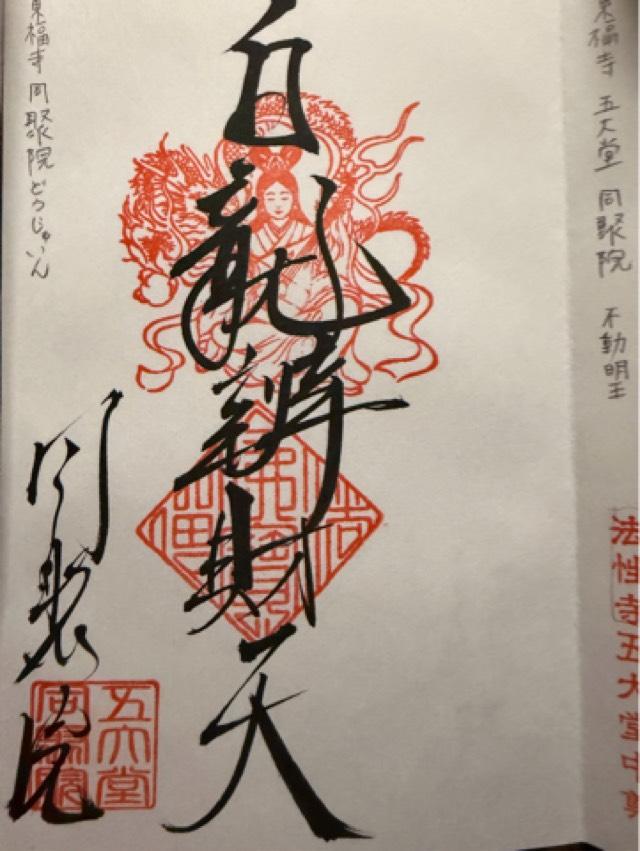 東福寺 五大堂 同聚院 不動明王
法性寺五大堂中
白龍辨財天
同聚院
五大堂
同聚院
東福寺 同聚院 どうじゅいん